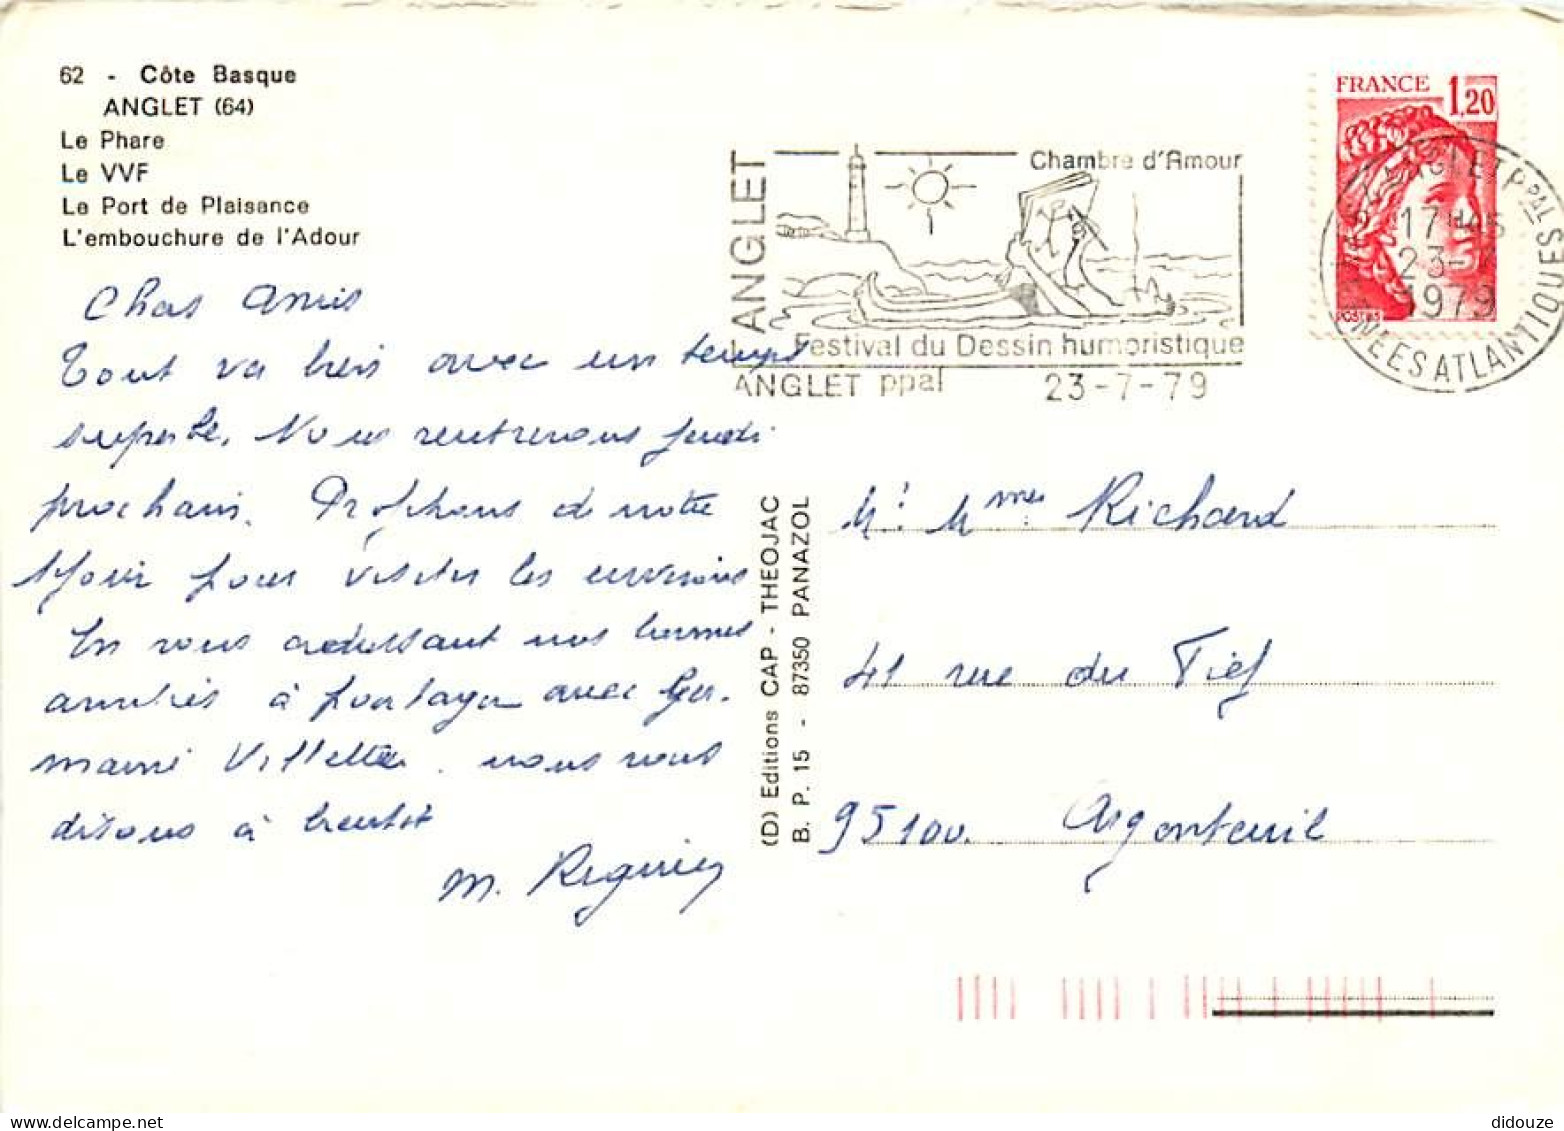 62 - Côte Basque
ANGLET (64)
Le Phare
Le VVF
Le Port de Plaisance
L'embouchure de l'Adour
Chers Amis
Tout va bien avec un temps
superbe. Nous rentrerons jeudi
prochain. Profitons de notre
séjour pour visiter les environs
En vous adressant nos bonnes
amitiés à partager avec Ger-
maine Villette. nous vous
disons à bientôt
M.
ANGLET
Chambre d'Amour
Festival du Dessin humoristique
ANGLET ppal 23-7-79
FRANCE 1,20
POSTES
ANGLET Ppal
17H
23-7
1979
PYRENEES ATLANTIQUES
(D) Editions CAP - THEOJAC
B. P. 15 - 87350 PANAZOL
M. Mme Richard
41 rue du Tief
95100. Argenteuil
didouze